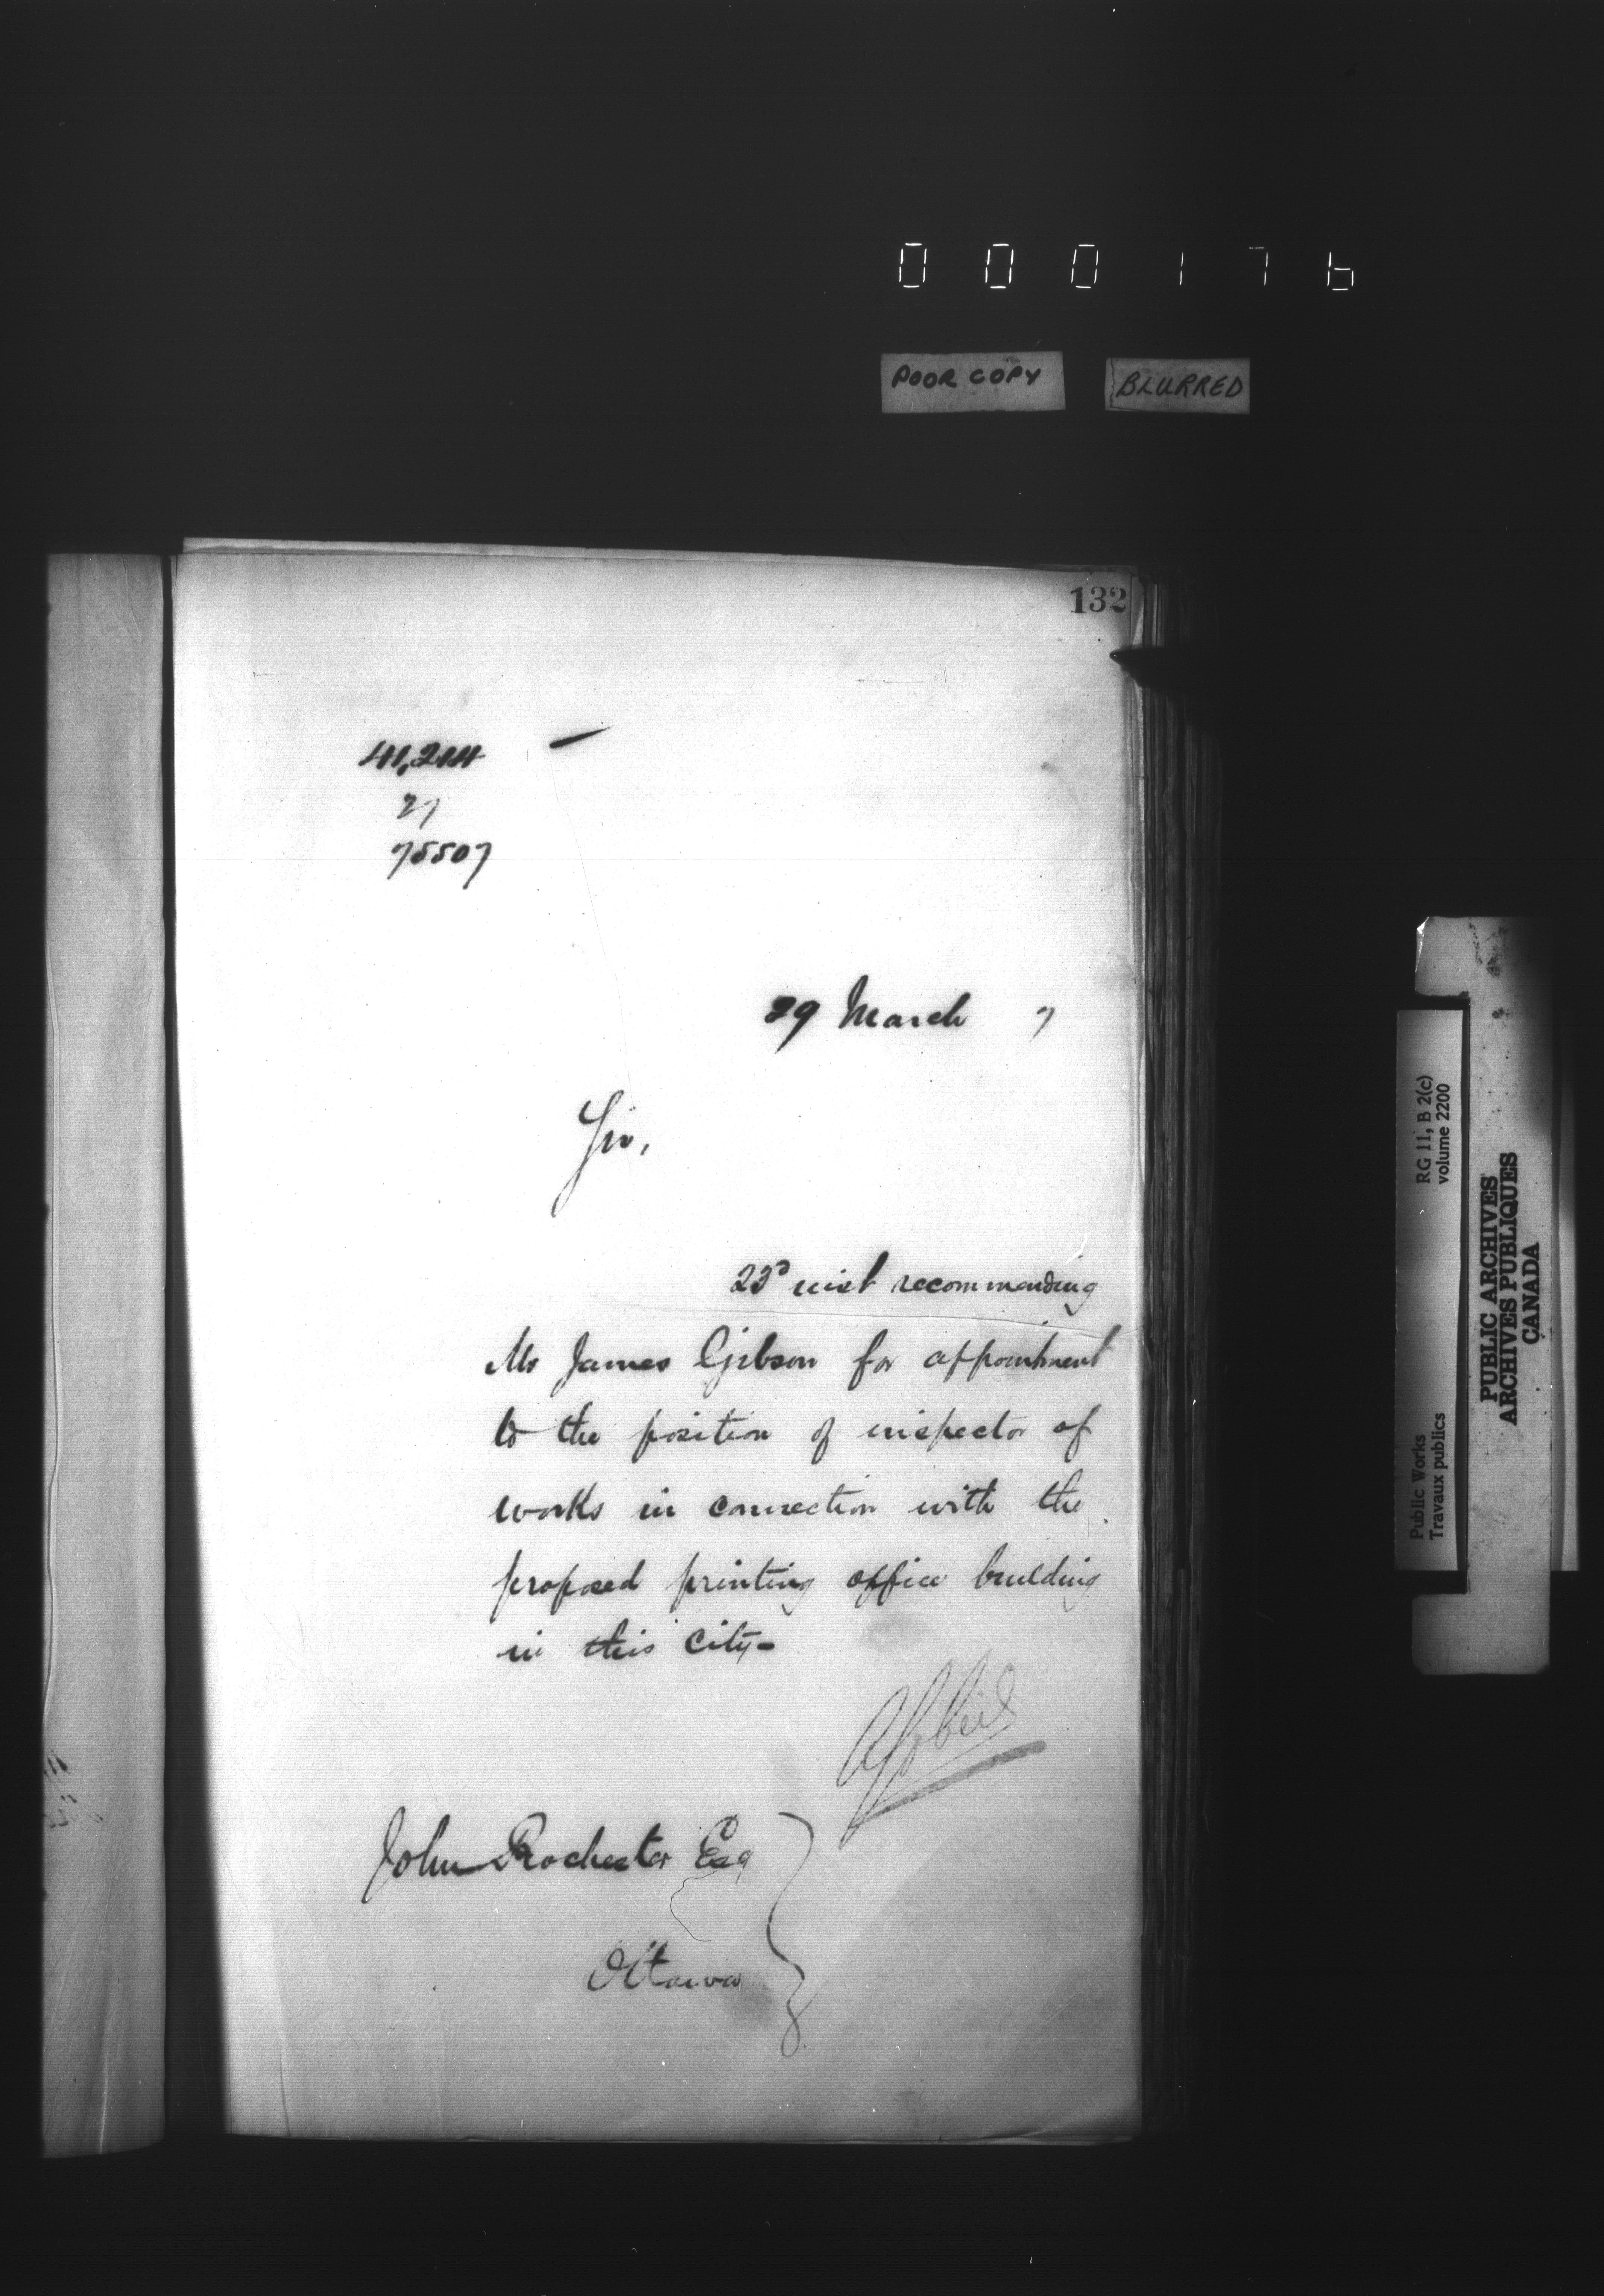 000176
POOR COPY BLURRED
132
27
75507
29 March 7
Sir,
23d inst recommending
Mr James Gibson for appointment
to the position of inspector of
works in connection with the
proposed printing office building
in this City-
John Rochester Esq
Ottawa
RG 11, B 2(c)
volume 2200
Public Works
Travaux publics
PUBLIC ARCHIVES
ARCHIVES PUBLIQUES
CANADA